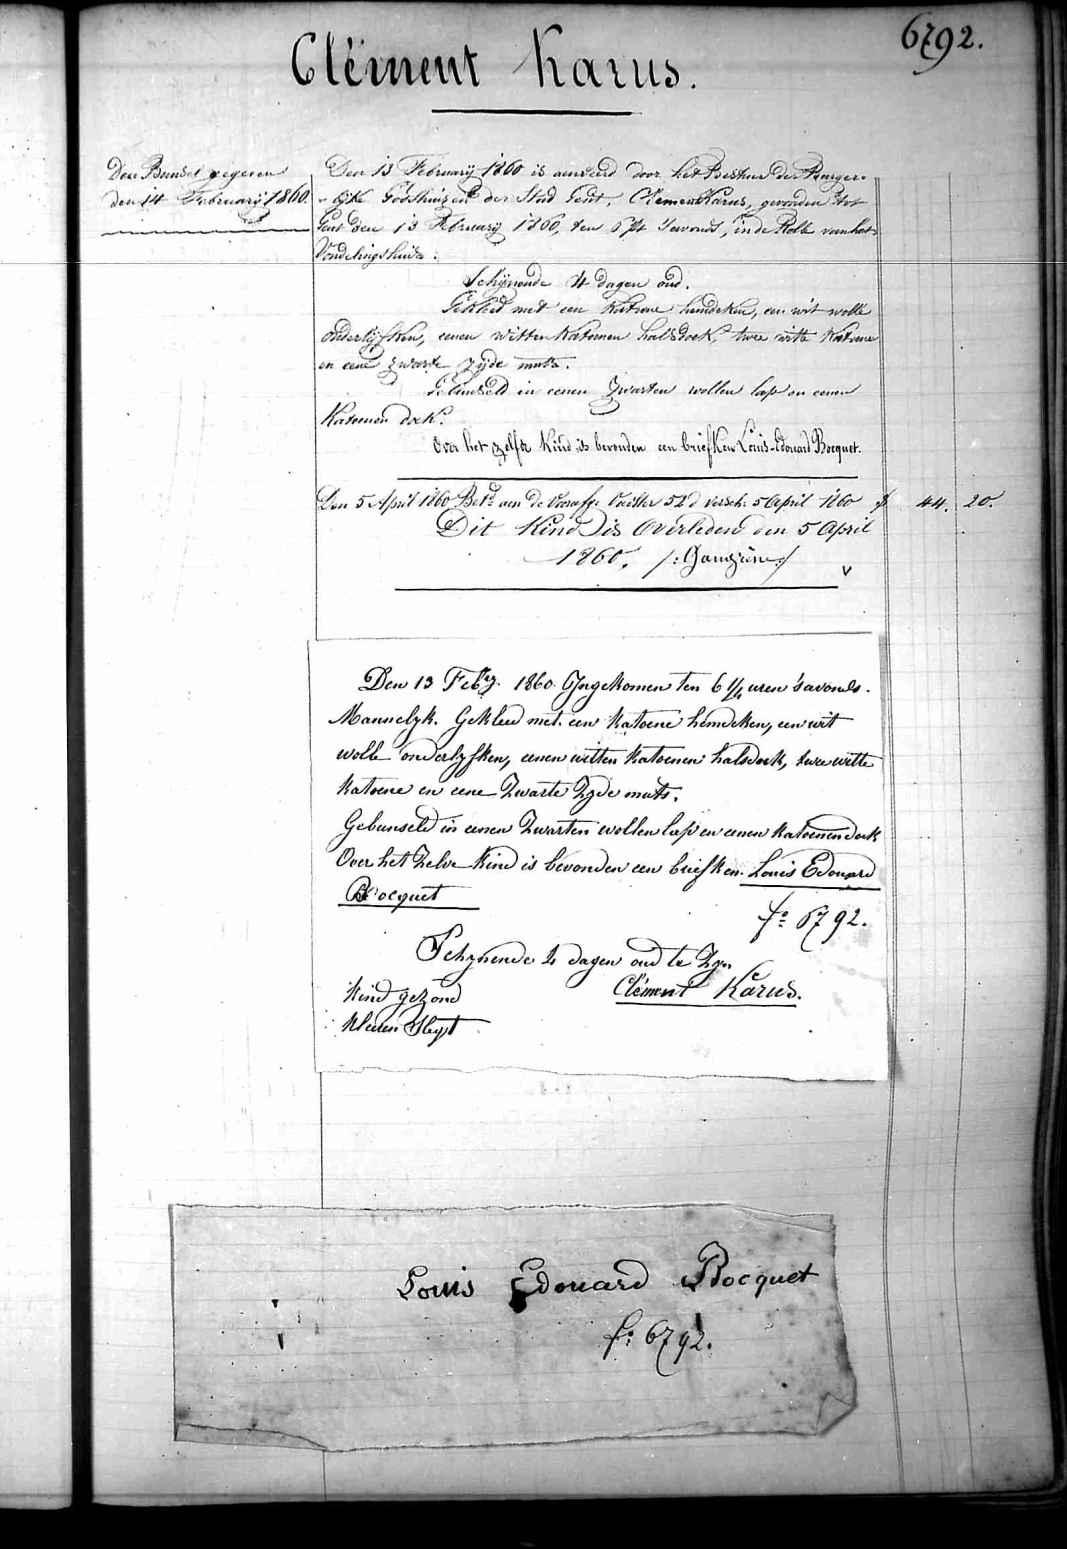 6792.
Clément Karus.
Den Bunsel gegeven
den 14 February 1860.
Den 13 February 1860 is aenveerd door het Bestuer der Burger-
-lyke Godshuizen der Stad Gent, Clement Karus, gevonden tot
Gent den 13 February 1860, ten 6 1/4 'savonds, in de Rolle van het
Vondelingshuis.
Schijnende 4 dagen oud.
Gekleed met een katoene hemdeken, een wit wolle
onderlyfken, eenen witten katoenen halsdoek, twee witte katoene
en eene zwarte zyde muts.
Gebunseld in eenen zwarten wollen lap en eenen
katoenen doek.
Over het zelfde kind is bevonden een briefken Louis-Edouard Bocquet.
Den 5 April 1860 Bet.d aen de Voedster 52 d versch. 5 April 1860 44. 20.
Dit Kind is Overleden den 5 April
1860. /: Gangrène :/
Den 13 Feb.ry 1860 Ingekomen ten 6 1/4 uren 'savonds.
Mannelyk. Gekleed met een katoene hemdeken, een wit
wolle onderlyfken, eenen witten katoenen halsdoek, twee witte
katoene en eene zwarte zyde muts.
Gebunseld in eenen zwarten wollen lap en eenen katoenen doek
Over het zelve kind is bevonden een briefken. Louis Edouard
Bocquet
f.o 6792.
Schynende 4 dagen oud te zyn
kind gezond
Clément Karus.
kleeren slegt
Louis Edouard Bocquet
f.o 6792.